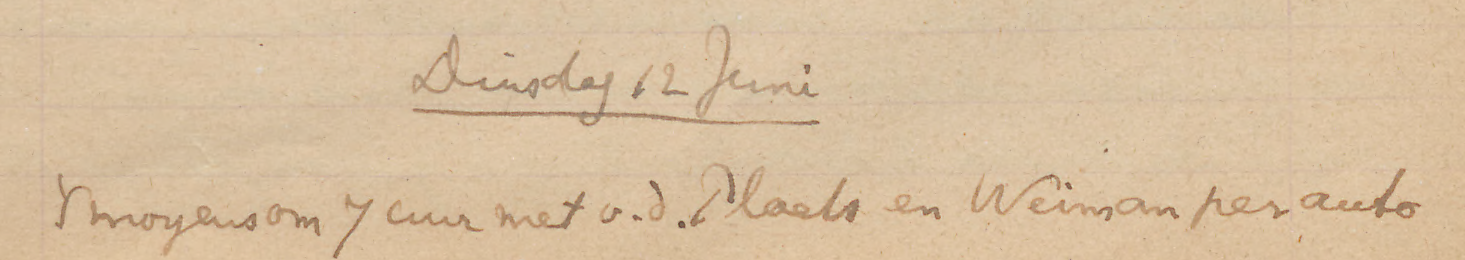 Dinsdag 12 Juni
's morgens om 7 uur met v.d. Plaats en Weiman per auto